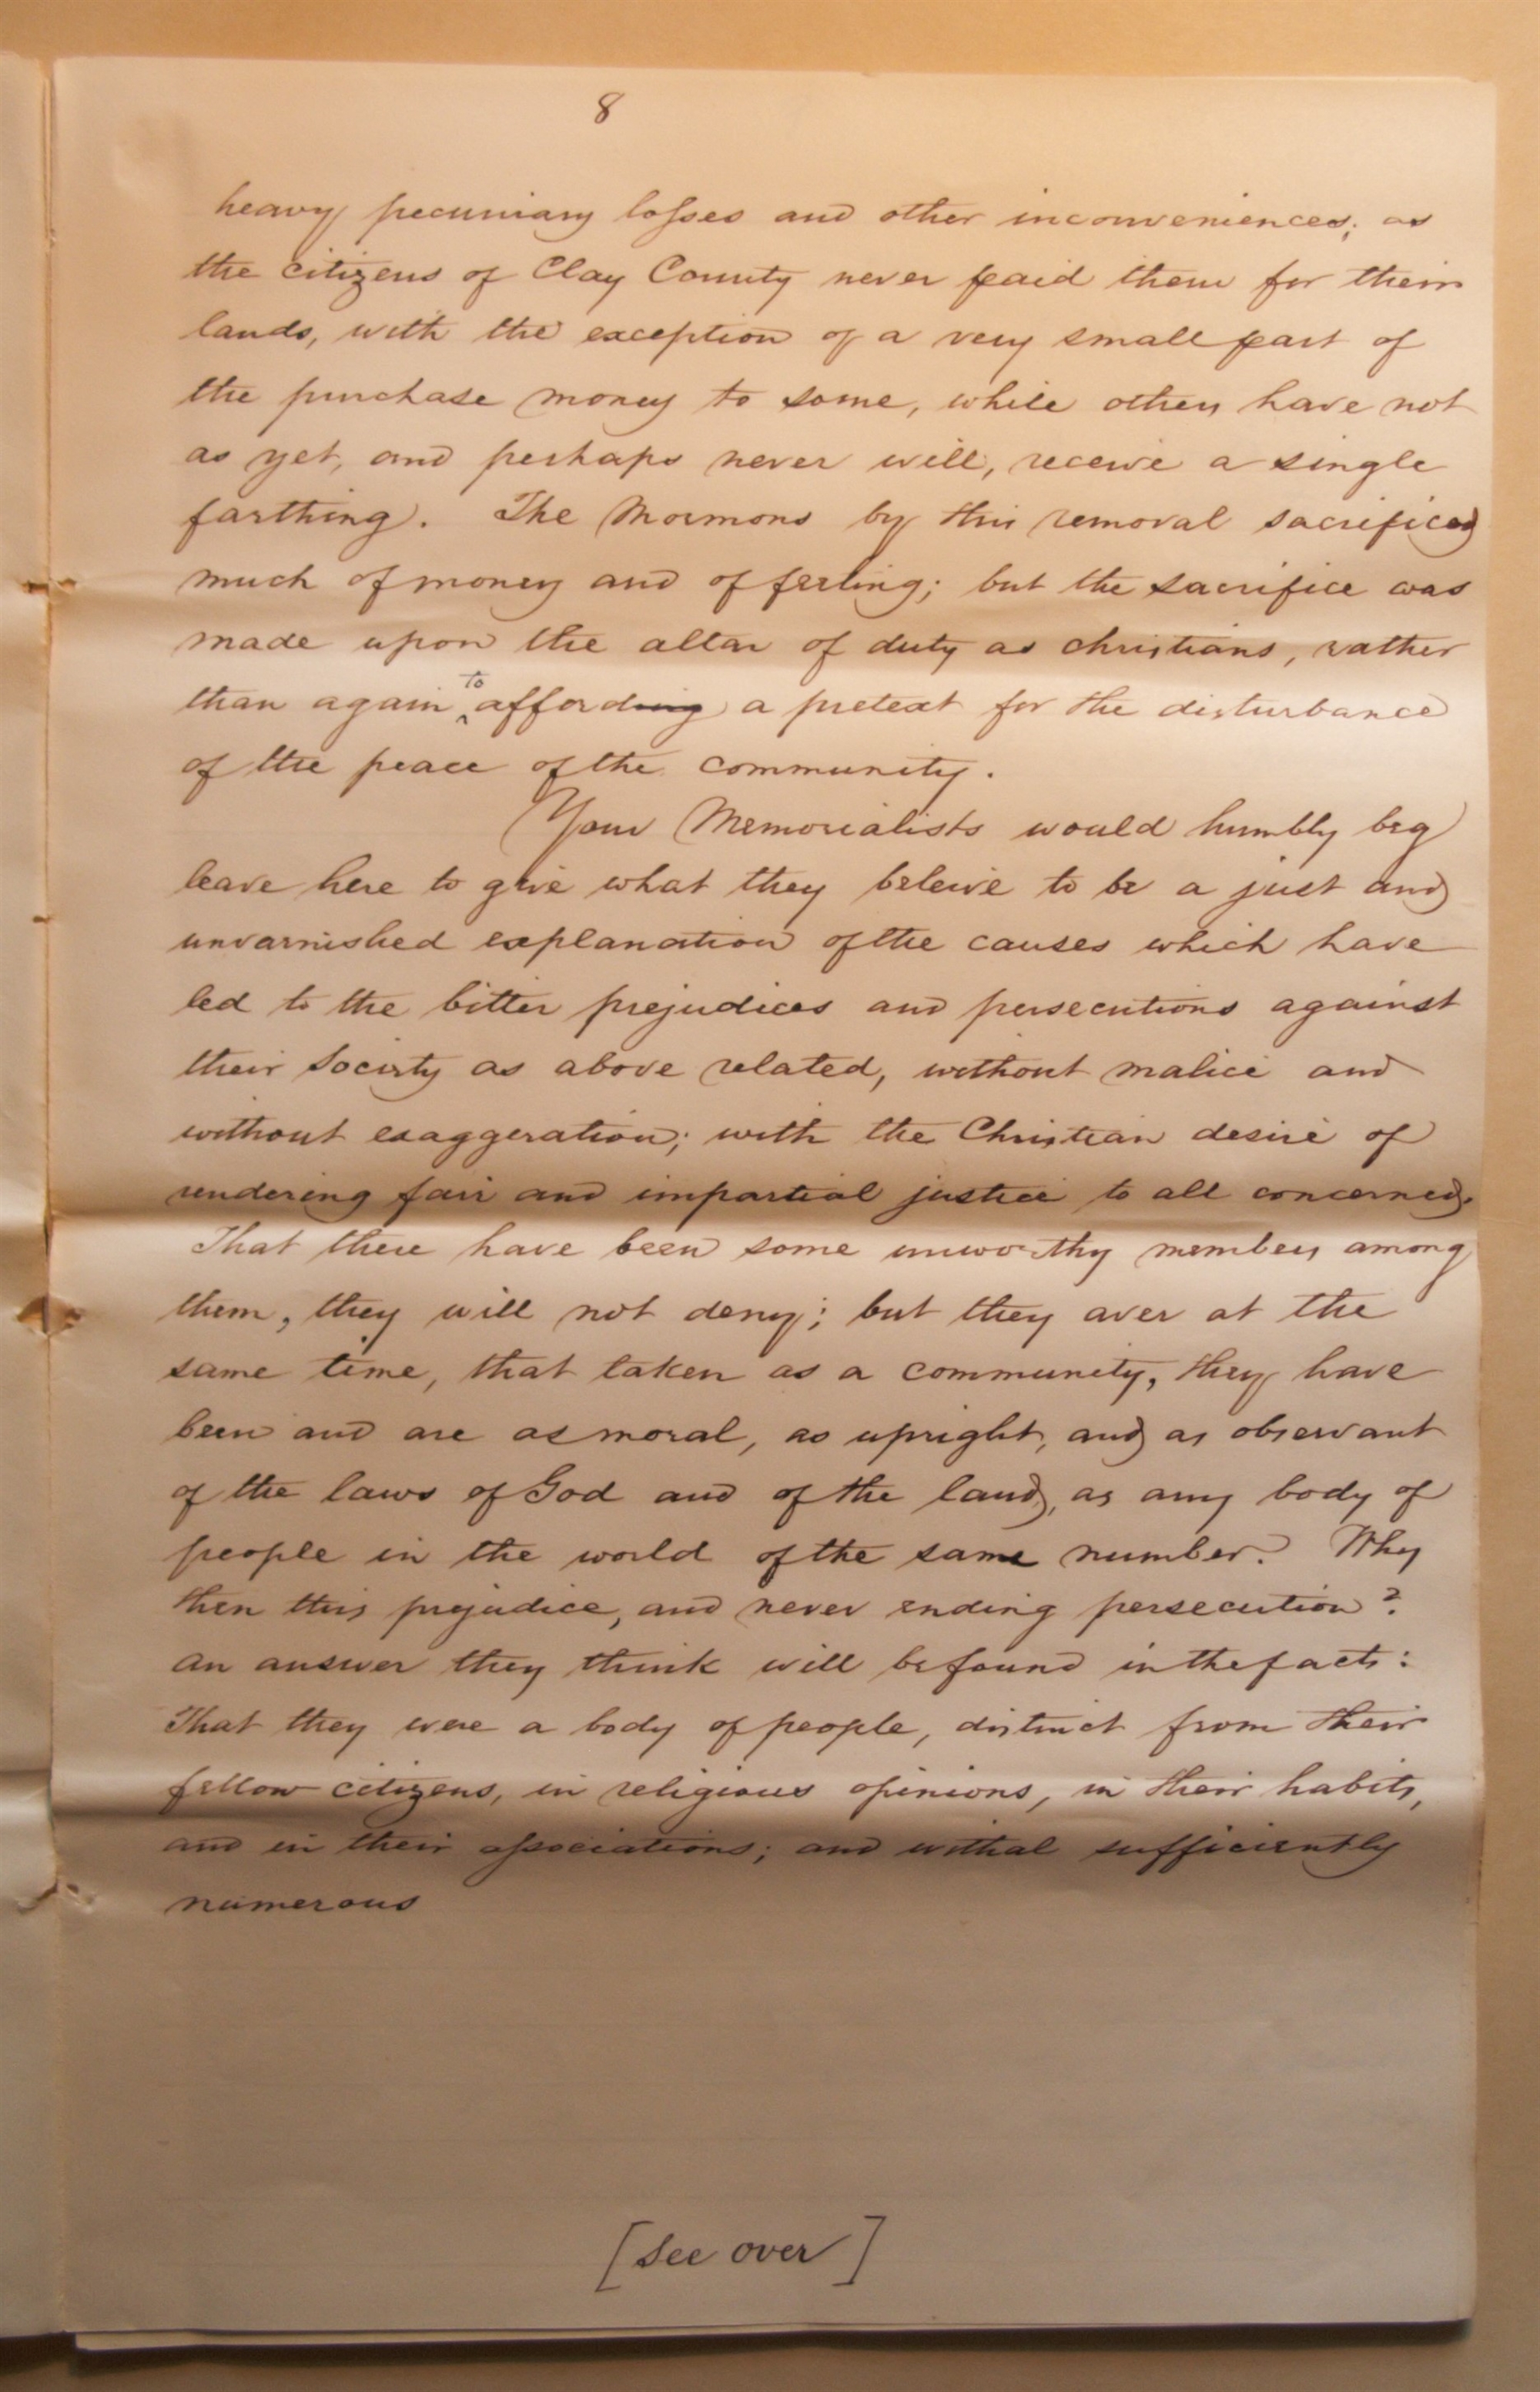 8
heavy pecuniary losses and other inconveniences; as
the citizens of Clay County never paid them for their
lands, with the exception of a very small part of
the purchase money to some, while others have not
as yet, and perhaps never will, receive a single
farthing. The Mormons by this removal sacrificed
much of money and of feeling; but the sacrifice was
made upon the altar of duty as christians, rather
than again to affording a pretext for the disturbance
of the peace of the community.
Your Memorialists would humbly beg
leave here to give what they beleive to be a just and
unvarnished explanation of the causes which have
led to the bitter prejudices and persecutions against
their Society as above related, without malice and
without exaggeration; with the Christian desire of
rendering fair and impartial justice to all concerned.
That there have been some unworthy members among
them, they will not deny; but they aver at the
same time, that taken as a community, they have
been and are as moral, as upright, and as observant
of the laws of God and of the land, as any body of
people in the world of the same number. Why
then this prejudice, and never ending persecution?
An answer they think will be found in the facts:
That they were a body of people, distinct from their
fellow citizens, in religious opinions, in their habits,
and in their associations; and withal sufficiently
numerous
[See over]